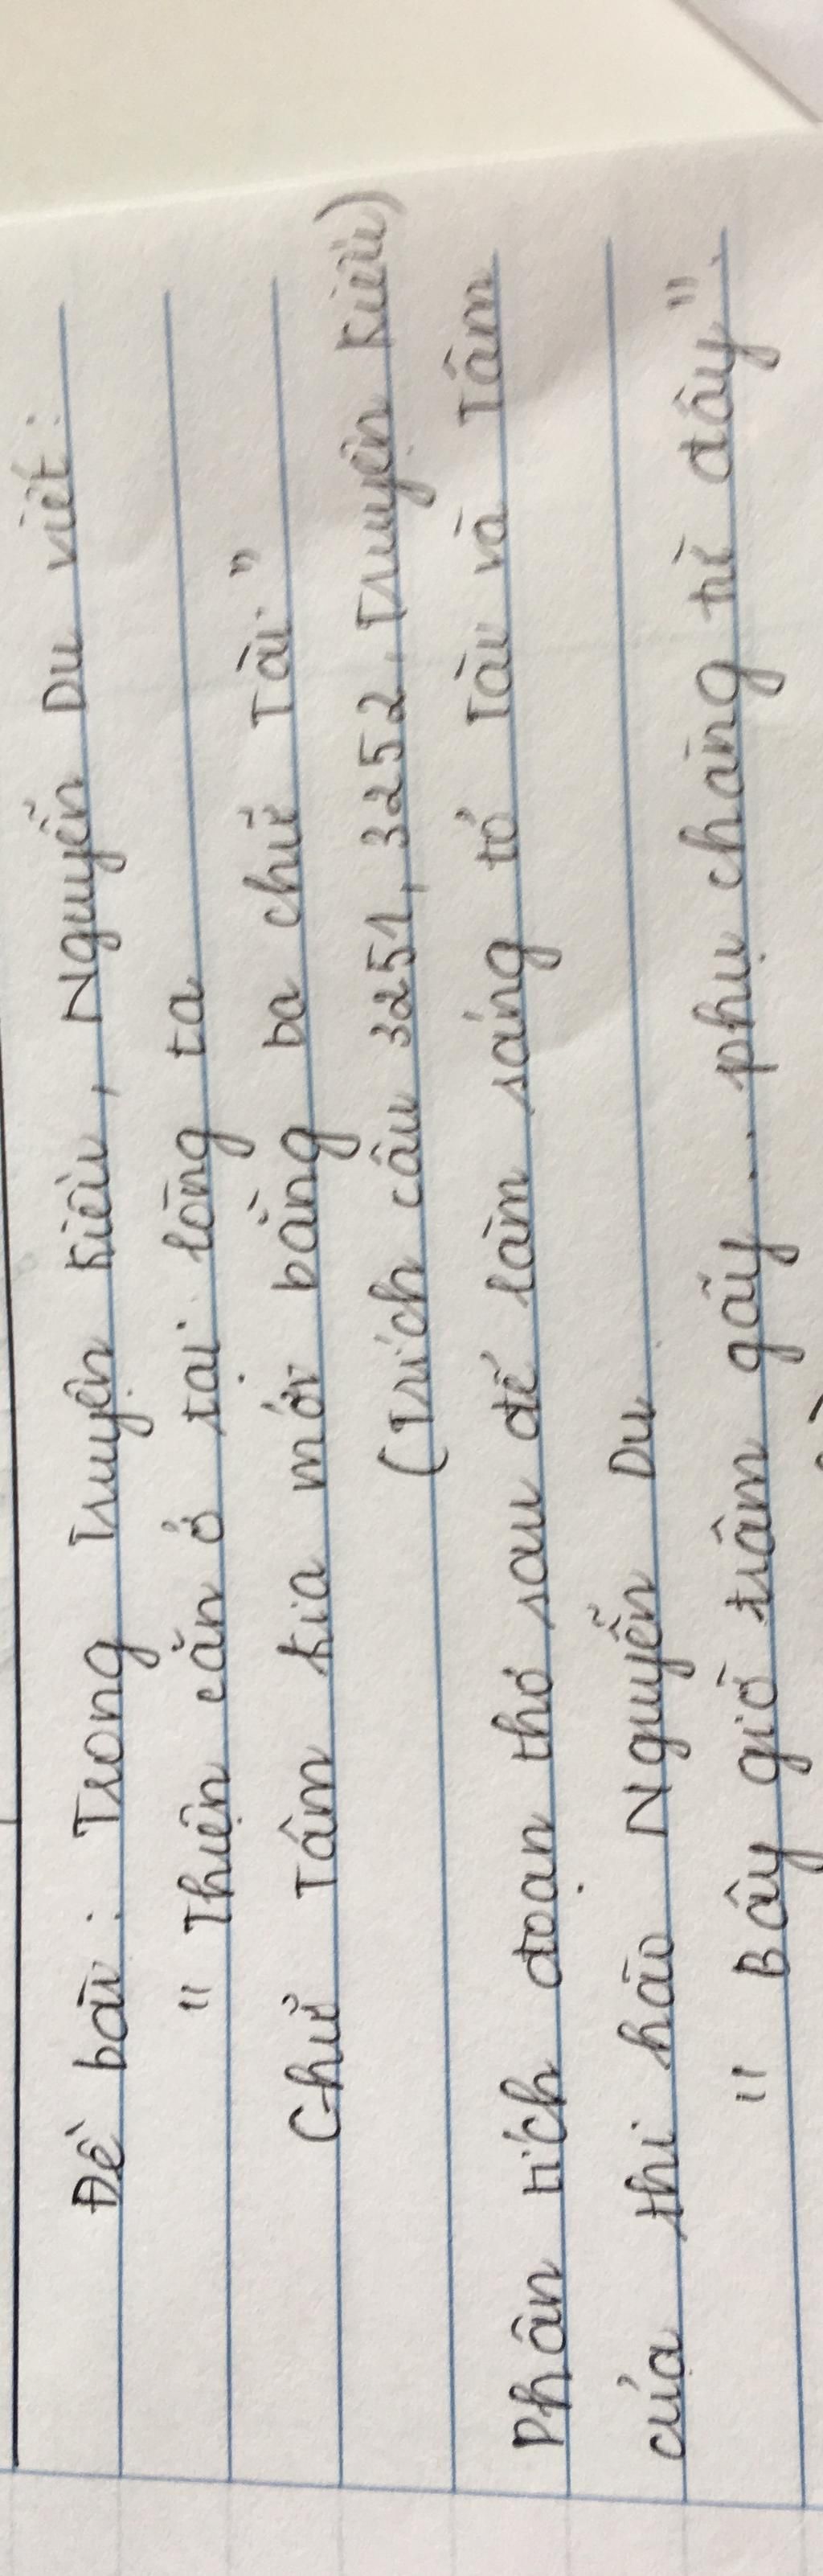 Đề bài: Trong Truyện Kiều, Nguyễn Du viết:
"Thiện căn ở tại lòng ta
Chữ Tâm kia mới bằng ba chữ Tài."
(Trích câu 3251, 3252, Truyện Kiều)
Phân tích đoạn thơ sau để làm sáng tỏ Tài và Tâm
của thi hào Nguyễn Du
"Bây giờ trâm gãy... phụ chàng từ đây".